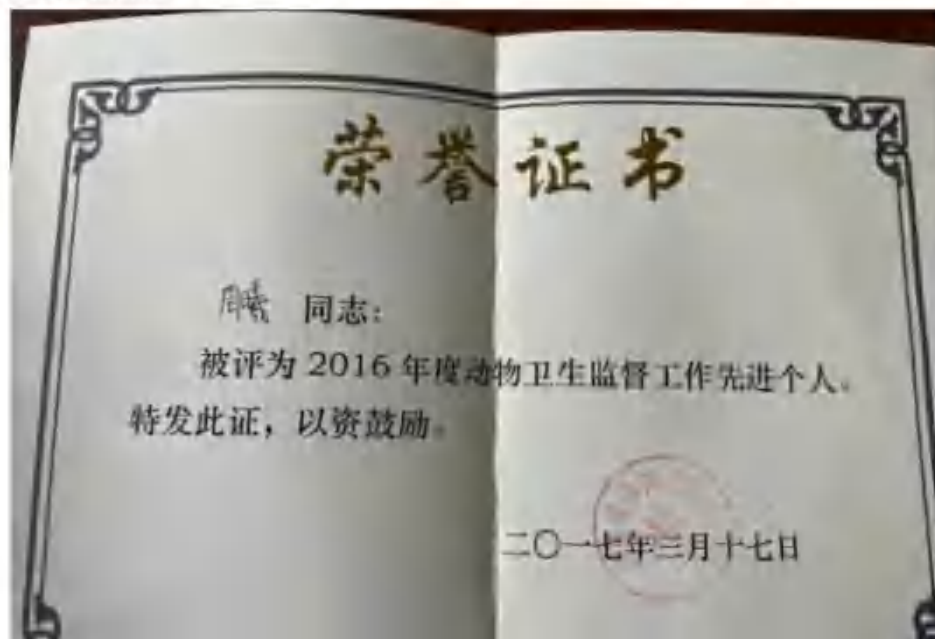 荣誉证书
周曦 同志：
被评为 2016 年度动物卫生监督工作先进个人。
特发此证，以资鼓励。
二〇一七年三月十七日